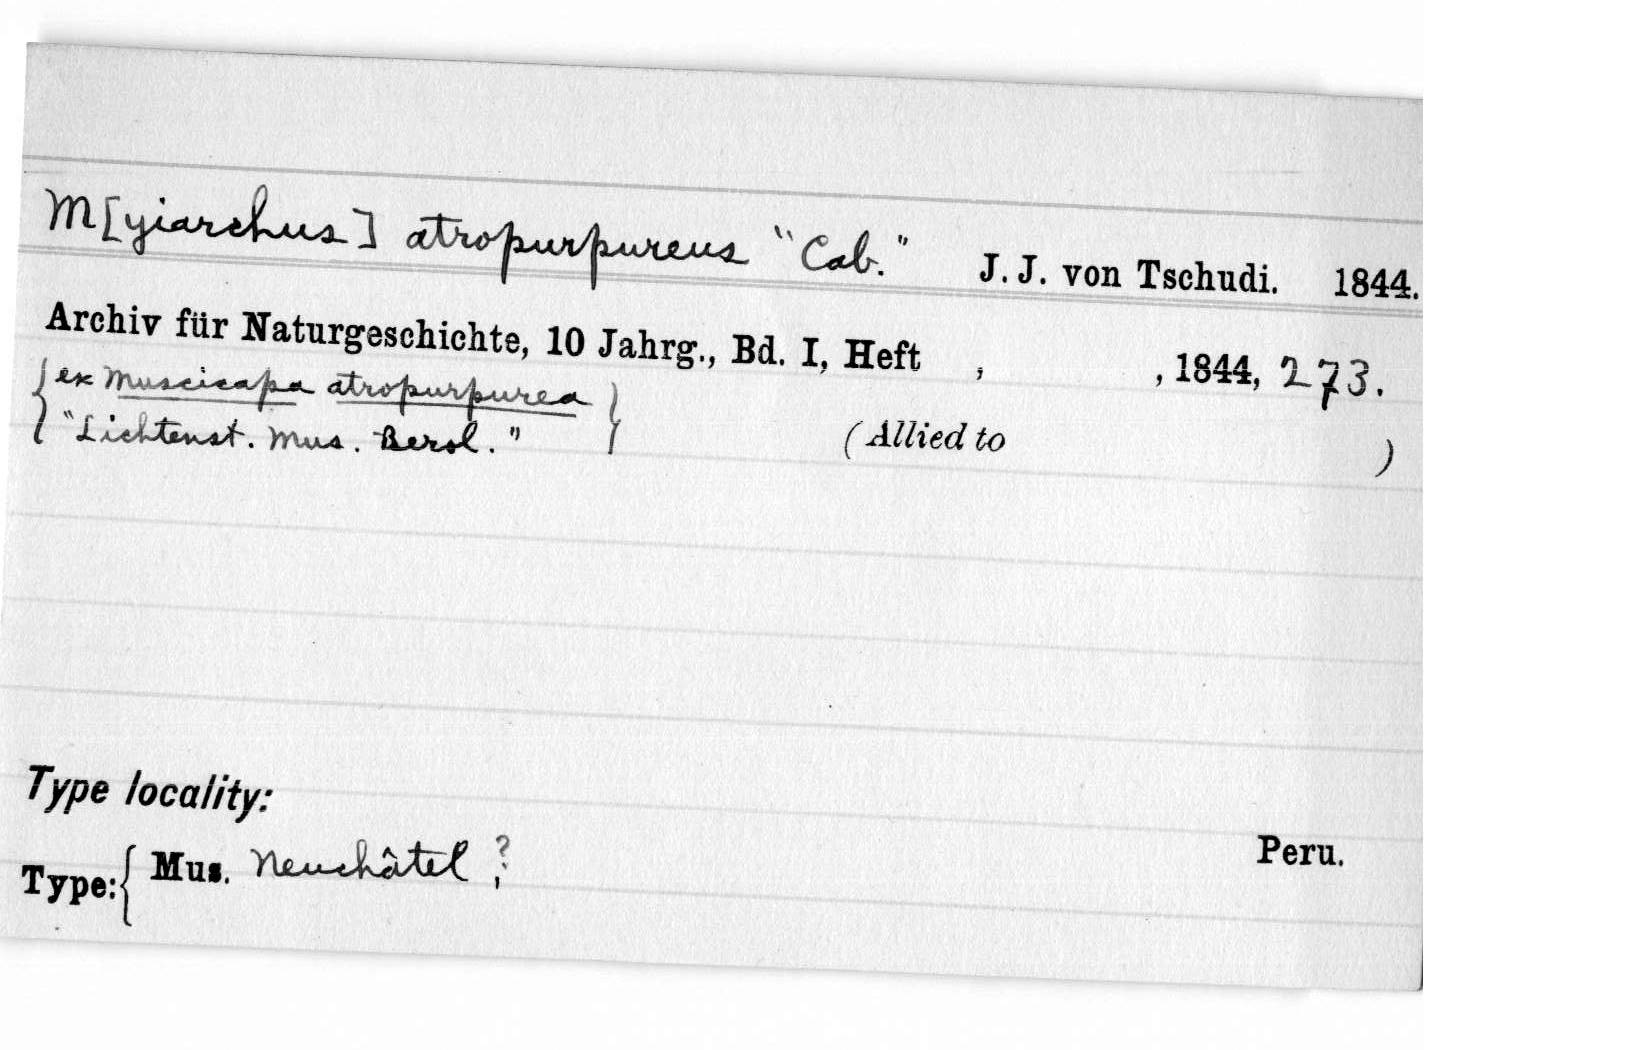 M[yiarchus] atropurpureus "Cab." J. J. von Tschudi. 1844.
Archiv für Naturgeschichte, 10 Jahrg., Bd. I, Heft , , 1844, 273.
{ex Muscicapa atropurpurea}
{"Lichtenst. Mus. Berol."}
(Allied to )
Type locality:
Peru.
Type: { Mus. Neuchâtel ?